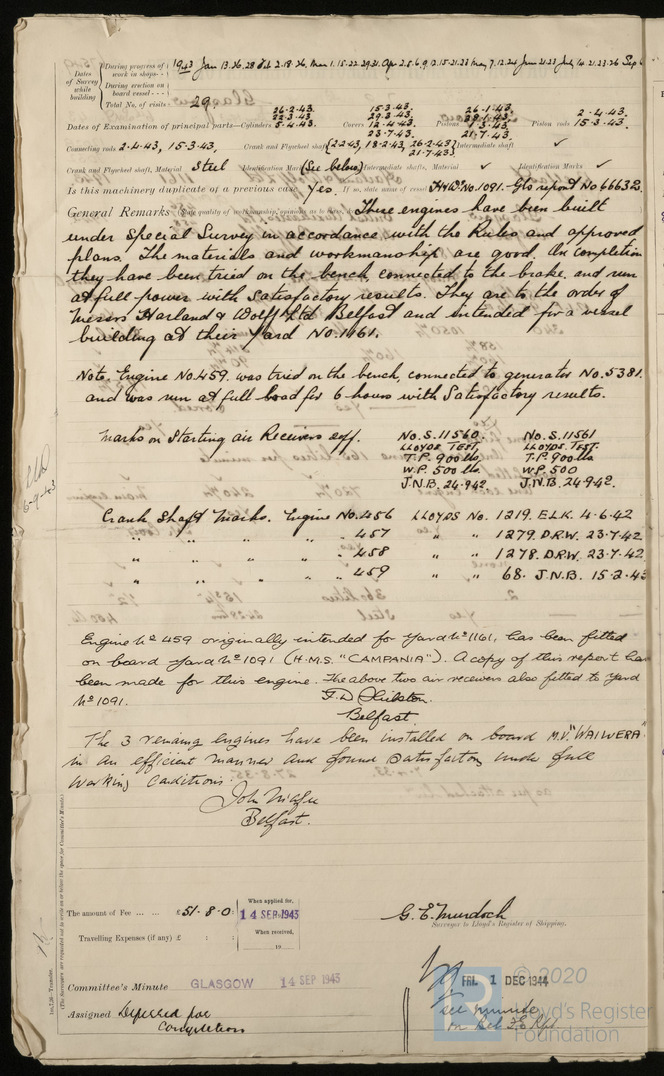 Dates of Survey while building
During progress of work in shops - - 1943 Jan 13.26.28 Feb 2.18.26, Mar 1.15.22.29.31. Apr 2.5.6.9.12.15.21.23 May 7.12.24 Jun 21.23 July 14.21.23.26 Sep 6
During erection on board vessel - - -
Total No. of visits 29.
26-2-43. 15-3-43. 26-1-43.
22-3-43. 29.3.43. 2-4-43.
Dates of Examination of principal parts—Cylinders 5-4-43. Covers 12-4-43. Pistons 1-3-43. Piston rods 15-3-43.
23-7-43. 21-7-43.
Connecting rods 2-4-43, 15-3-43, Crank and Flywheel shaft {2-2-43, 18-2-43, 26-2-43} Intermediate shaft ✓
21-7-43}
Crank and Flywheel shaft, Material Steel Identification Mark (See below) Intermediate shafts, Material ✓ Identification Marks ✓
Is this machinery duplicate of a previous case Yes. If so, state name of vessel H&W. No. 1091. Gls report No 66632.
General Remarks (State quality of workmanship, opinions as to class, &c.) These engines have been built
under Special Survey in accordance with the Rules and approved
plans. The materials and workmanship are good. On completion
they have been tried on the bench connected to the brake, and run
at full power with satisfactory results. They are to the order of
Messrs Harland & Wolff Ltd Belfast and intended for a vessel
building at their Yard No. 1161.
Note. Engine No. 459. was tried on the bench, connected to generator No. 5381.
and was run at full load for 6 hours with satisfactory results.
Marks on Starting air Receivers off. No. S. 11560. No. S. 11561
LLOYDS TEST. LLOYDS TEST.
T.P. 900 lbs. T.P. 900 lbs
W.P. 500 lbs. W.P. 500
J.N.B. 24.9.42 J.N.B. 24.9.42.
Crank Shaft Marks. Engine No. 456 LLOYDS No. 1219. E.L.K. 4-6-42
" " " " 457 " " 1279. D.R.W. 23-7-42.
" " " " 458 " " 1278. D.R.W. 23-7-42.
" " " " 459 " " 68. J.N.B. 15-2-43
6-9-43
Engine No 459 originally intended for Yard No 1161, has been fitted
on board Yard No 1091 (H.M.S. "CAMPANIA"). A copy of this report has
been made for this engine. The above two air receivers also fitted to Yard
No 1091.
Belfast.
The 3 remaing engines have been installed on board M.V. "WAIWERA"
in an efficient manner and found satisfactory under full
working conditions.
John
Belfast.
(The Surveyors are requested not to write on or below the space for Committee's Minute.)
The amount of Fee ... ... £ 51 - 8 - 0 : When applied for, 14 SEP 1943
Travelling Expenses (if any) £ : : When received, 19
G. E. Murdoch
Surveyor to Lloyd's Register of Shipping.
Committee's Minute GLASGOW 14 SEP 1943
FRI. 1 DEC 1944
Assigned Deferred for
Completion
See minute
on Bel. F.E. Rpt
© 2020
Lloyd's Register
Foundation